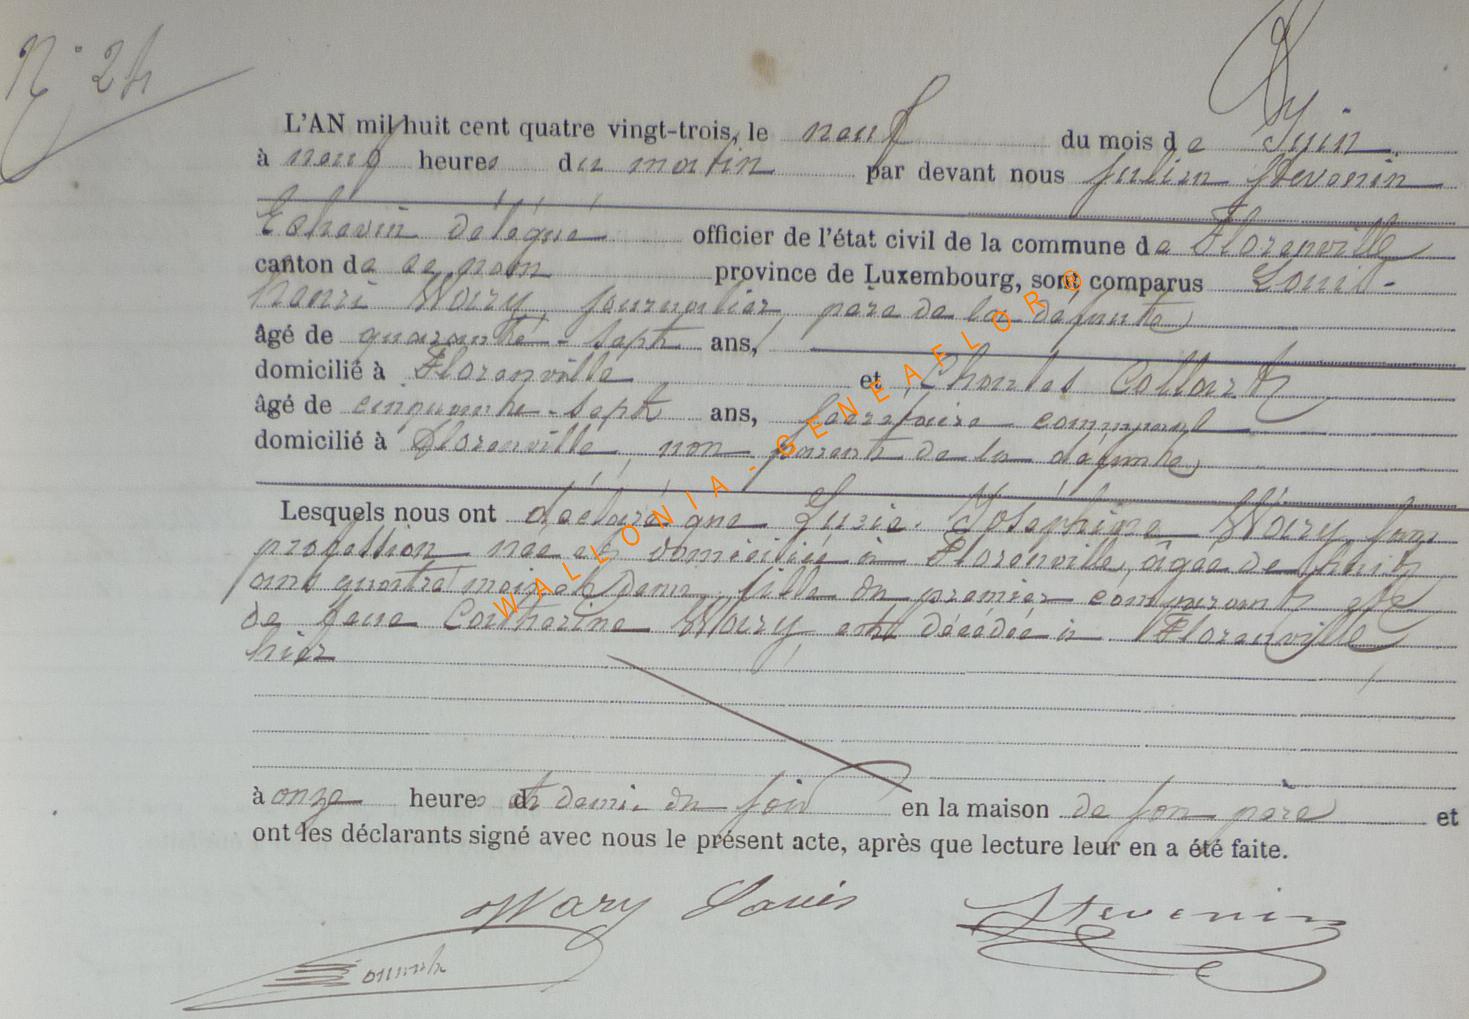 N° 24
L'AN mil huit cent quatre vingt-trois, le neuf du mois de Juin
à neuf heures du matin par devant nous Julien Stevenin
Echevin délégué officier de l'état civil de la commune de Florenville
canton de ce nom province de Luxembourg, sont comparus Louis-
henri Wary, journalier, père de la défunte
âgé de quarante-sept ans,
domicilié à Florenville et Charles Collart
âgé de cinquante-sept ans, Secrétaire communal
domicilié à Florenville, non parent de la défunte
Lesquels nous ont déclaré que Lucie-Joséphine Wary, sans
profession née et domiciliée à Florenville, âgée de huit
ans quatre mois et demi, fille du premier comparant et
de feue Catherine Wary, est décédée à Florenville
hier
à onze heures et demie du soir en la maison de son père et
ont les déclarants signé avec nous le présent acte, après que lecture leur en a été faite.
Wary Louis Stevenin
WALLONIA-GENEAFLOR©